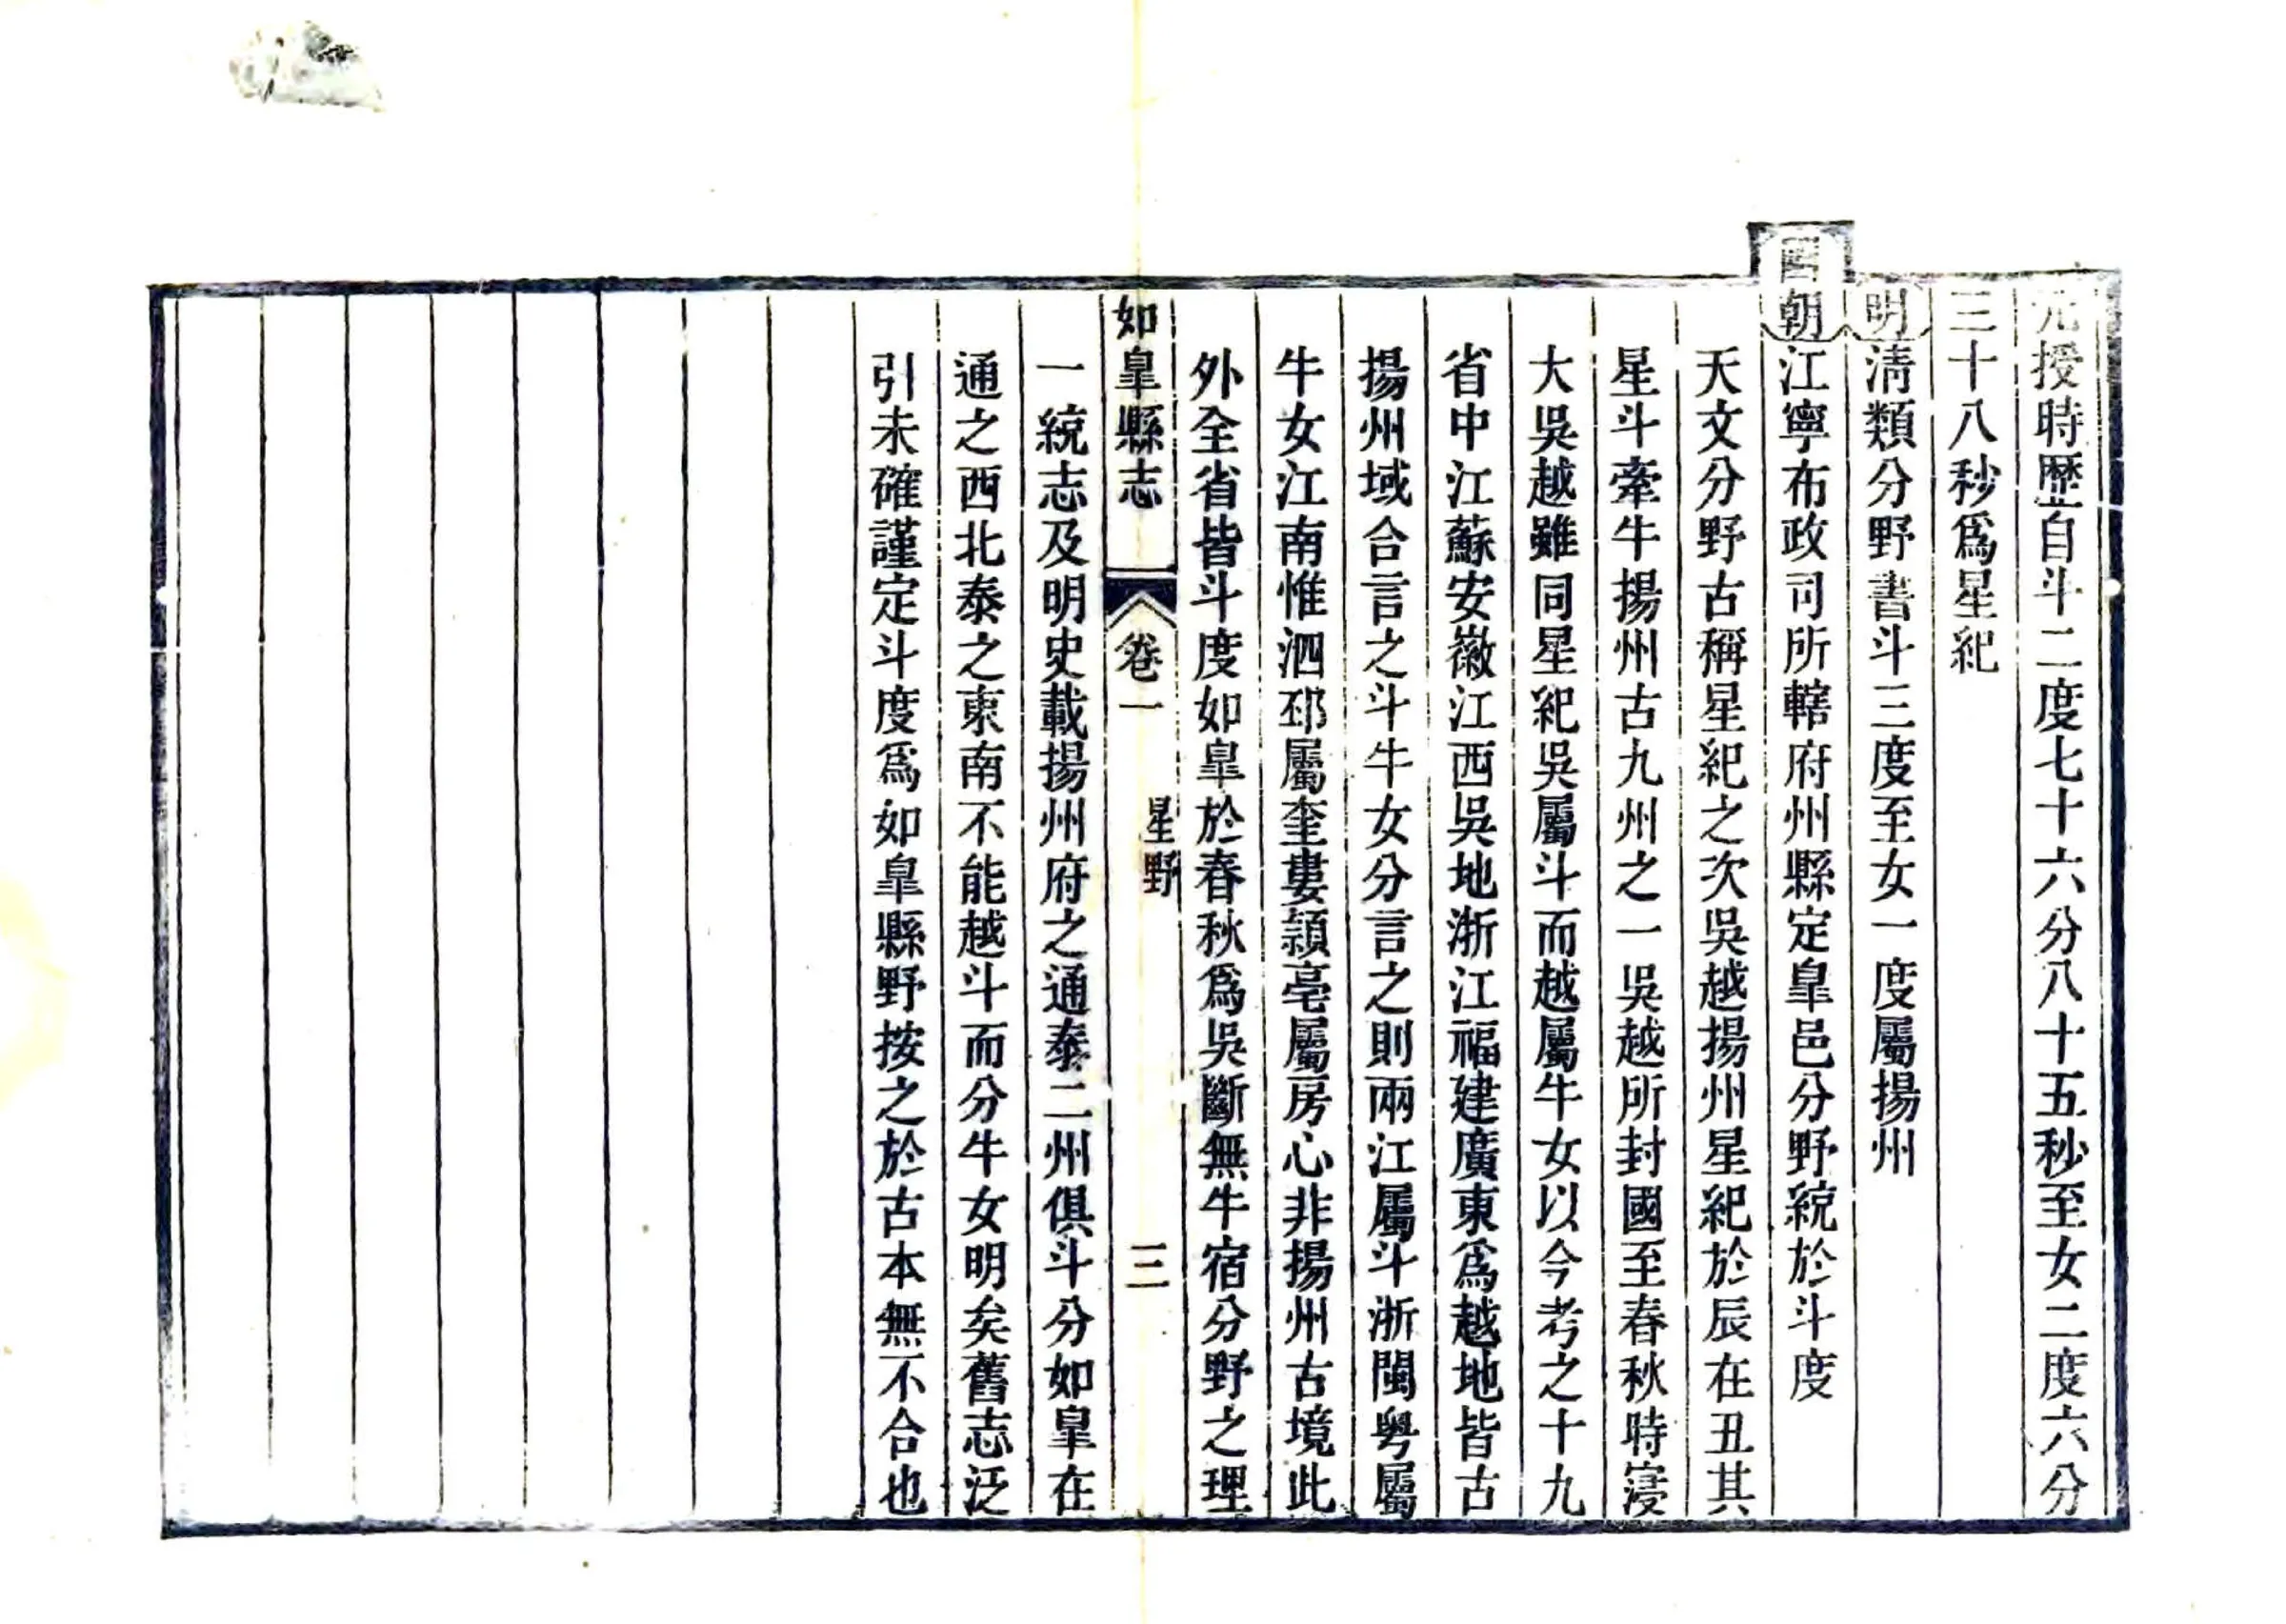 元授時歷自斗二度七十六分八十五秒至女二度六分
三十八秒爲星紀
明清類分野書斗三度至女一度屬揚州
國朝江寧布政司所轄府州縣定臯邑分野統於斗度
天文分野古稱星紀之次吳越揚州星紀於辰在丑其
星斗牽牛揚州古九州之一吳越所封國至春秋時寖
大吳越雖同星紀吳屬斗而越屬牛女以今考之十九
省中江蘇安徽江西吳地浙江福建廣東爲越地皆古
揚州域合言之斗牛女分言之則兩江屬斗浙閩粵屬
牛女江南惟泗邳屬奎婁潁亳屬房心非揚州古境此
外全省皆斗度如臯於春秋爲吳斷無牛宿分野之理
如臯縣志 卷一 星野 三
一統志及明史載揚州府之通泰二州俱斗分如臯在
通之西北泰之東南不能越斗而分牛女明矣舊志泛
引未確謹定斗度爲如臯縣野按之於古本無不合也